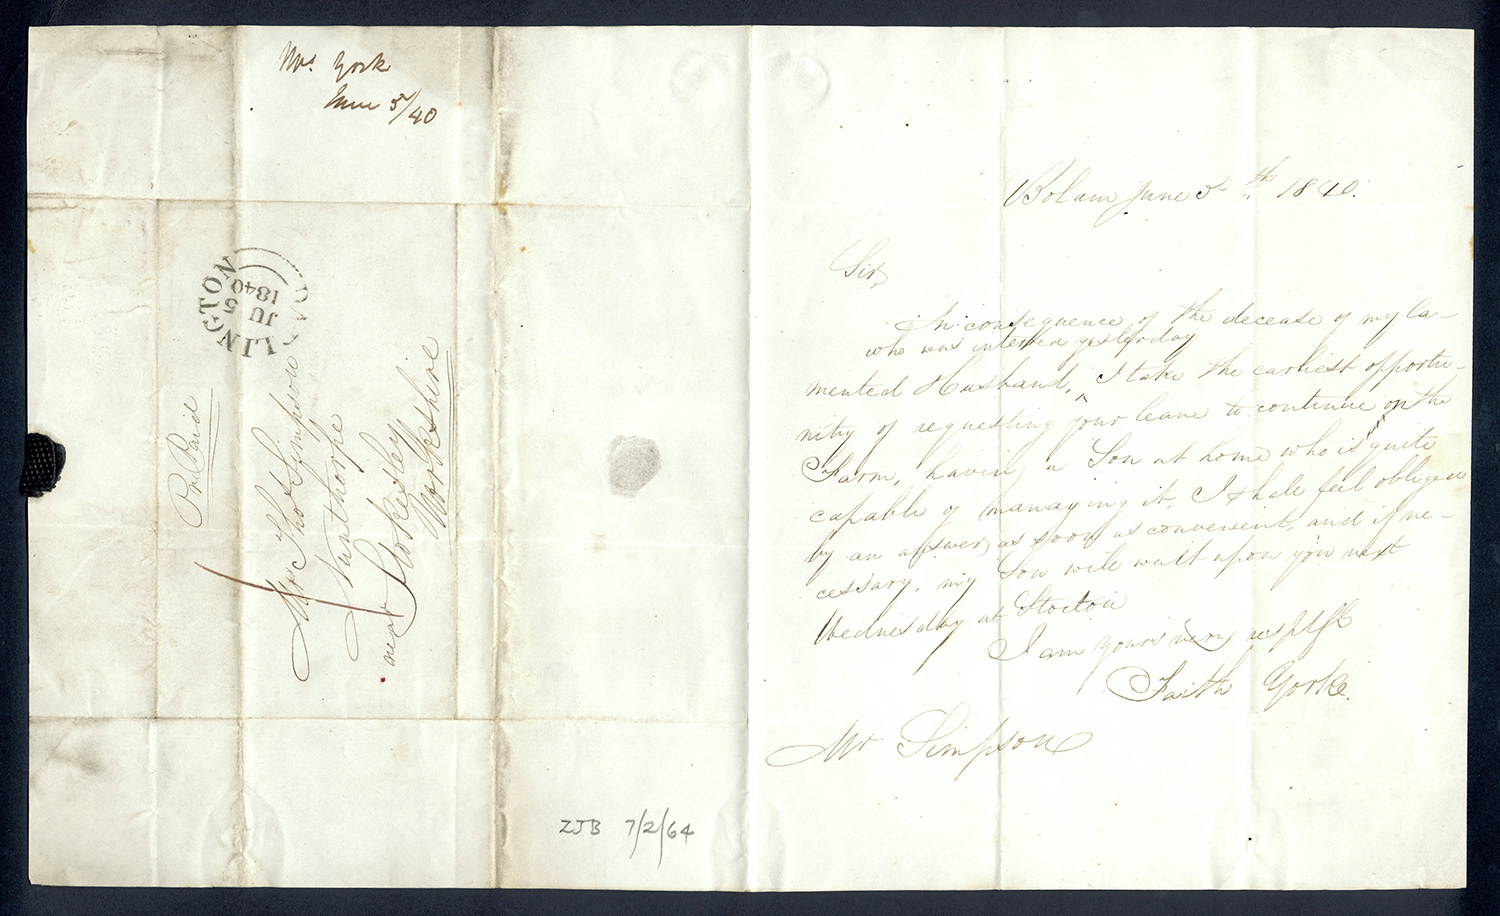 Mrs. York
June 5/40
DARLINGTON
JU 5
1840
Pre Paid
Mr Thos Simpson
Nunthorpe
near Stokesley
Yorkshire
ZJB 7/2/64
Bolam June 5th 1840.
Sir,
In consequence of the decease of my la-
who was interred yesterday
mented Husband, ^ I take the earliest opportu-
nity of requesting your leave to continue on the
Farm, having a Son at home who is quite
capable of managing it. I shall feel obliged
by an answer as soon as convenient, and if ne-
cessary, my Son will wait upon you next
Wednesday at Stockton
I am yours very resptfl
Faith Yorke.
Mr Simpson